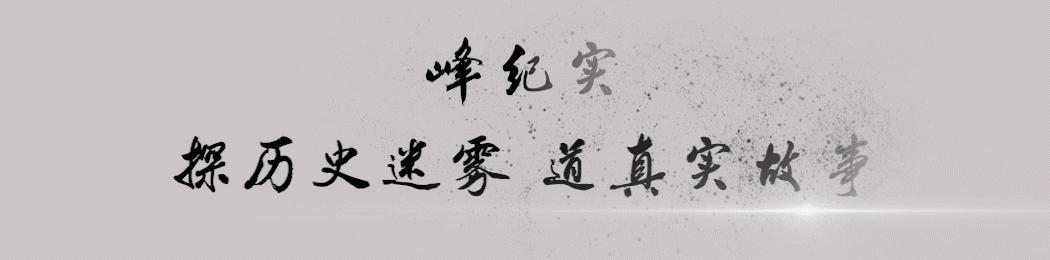 峰纪实
探历史迷雾 道真实故事